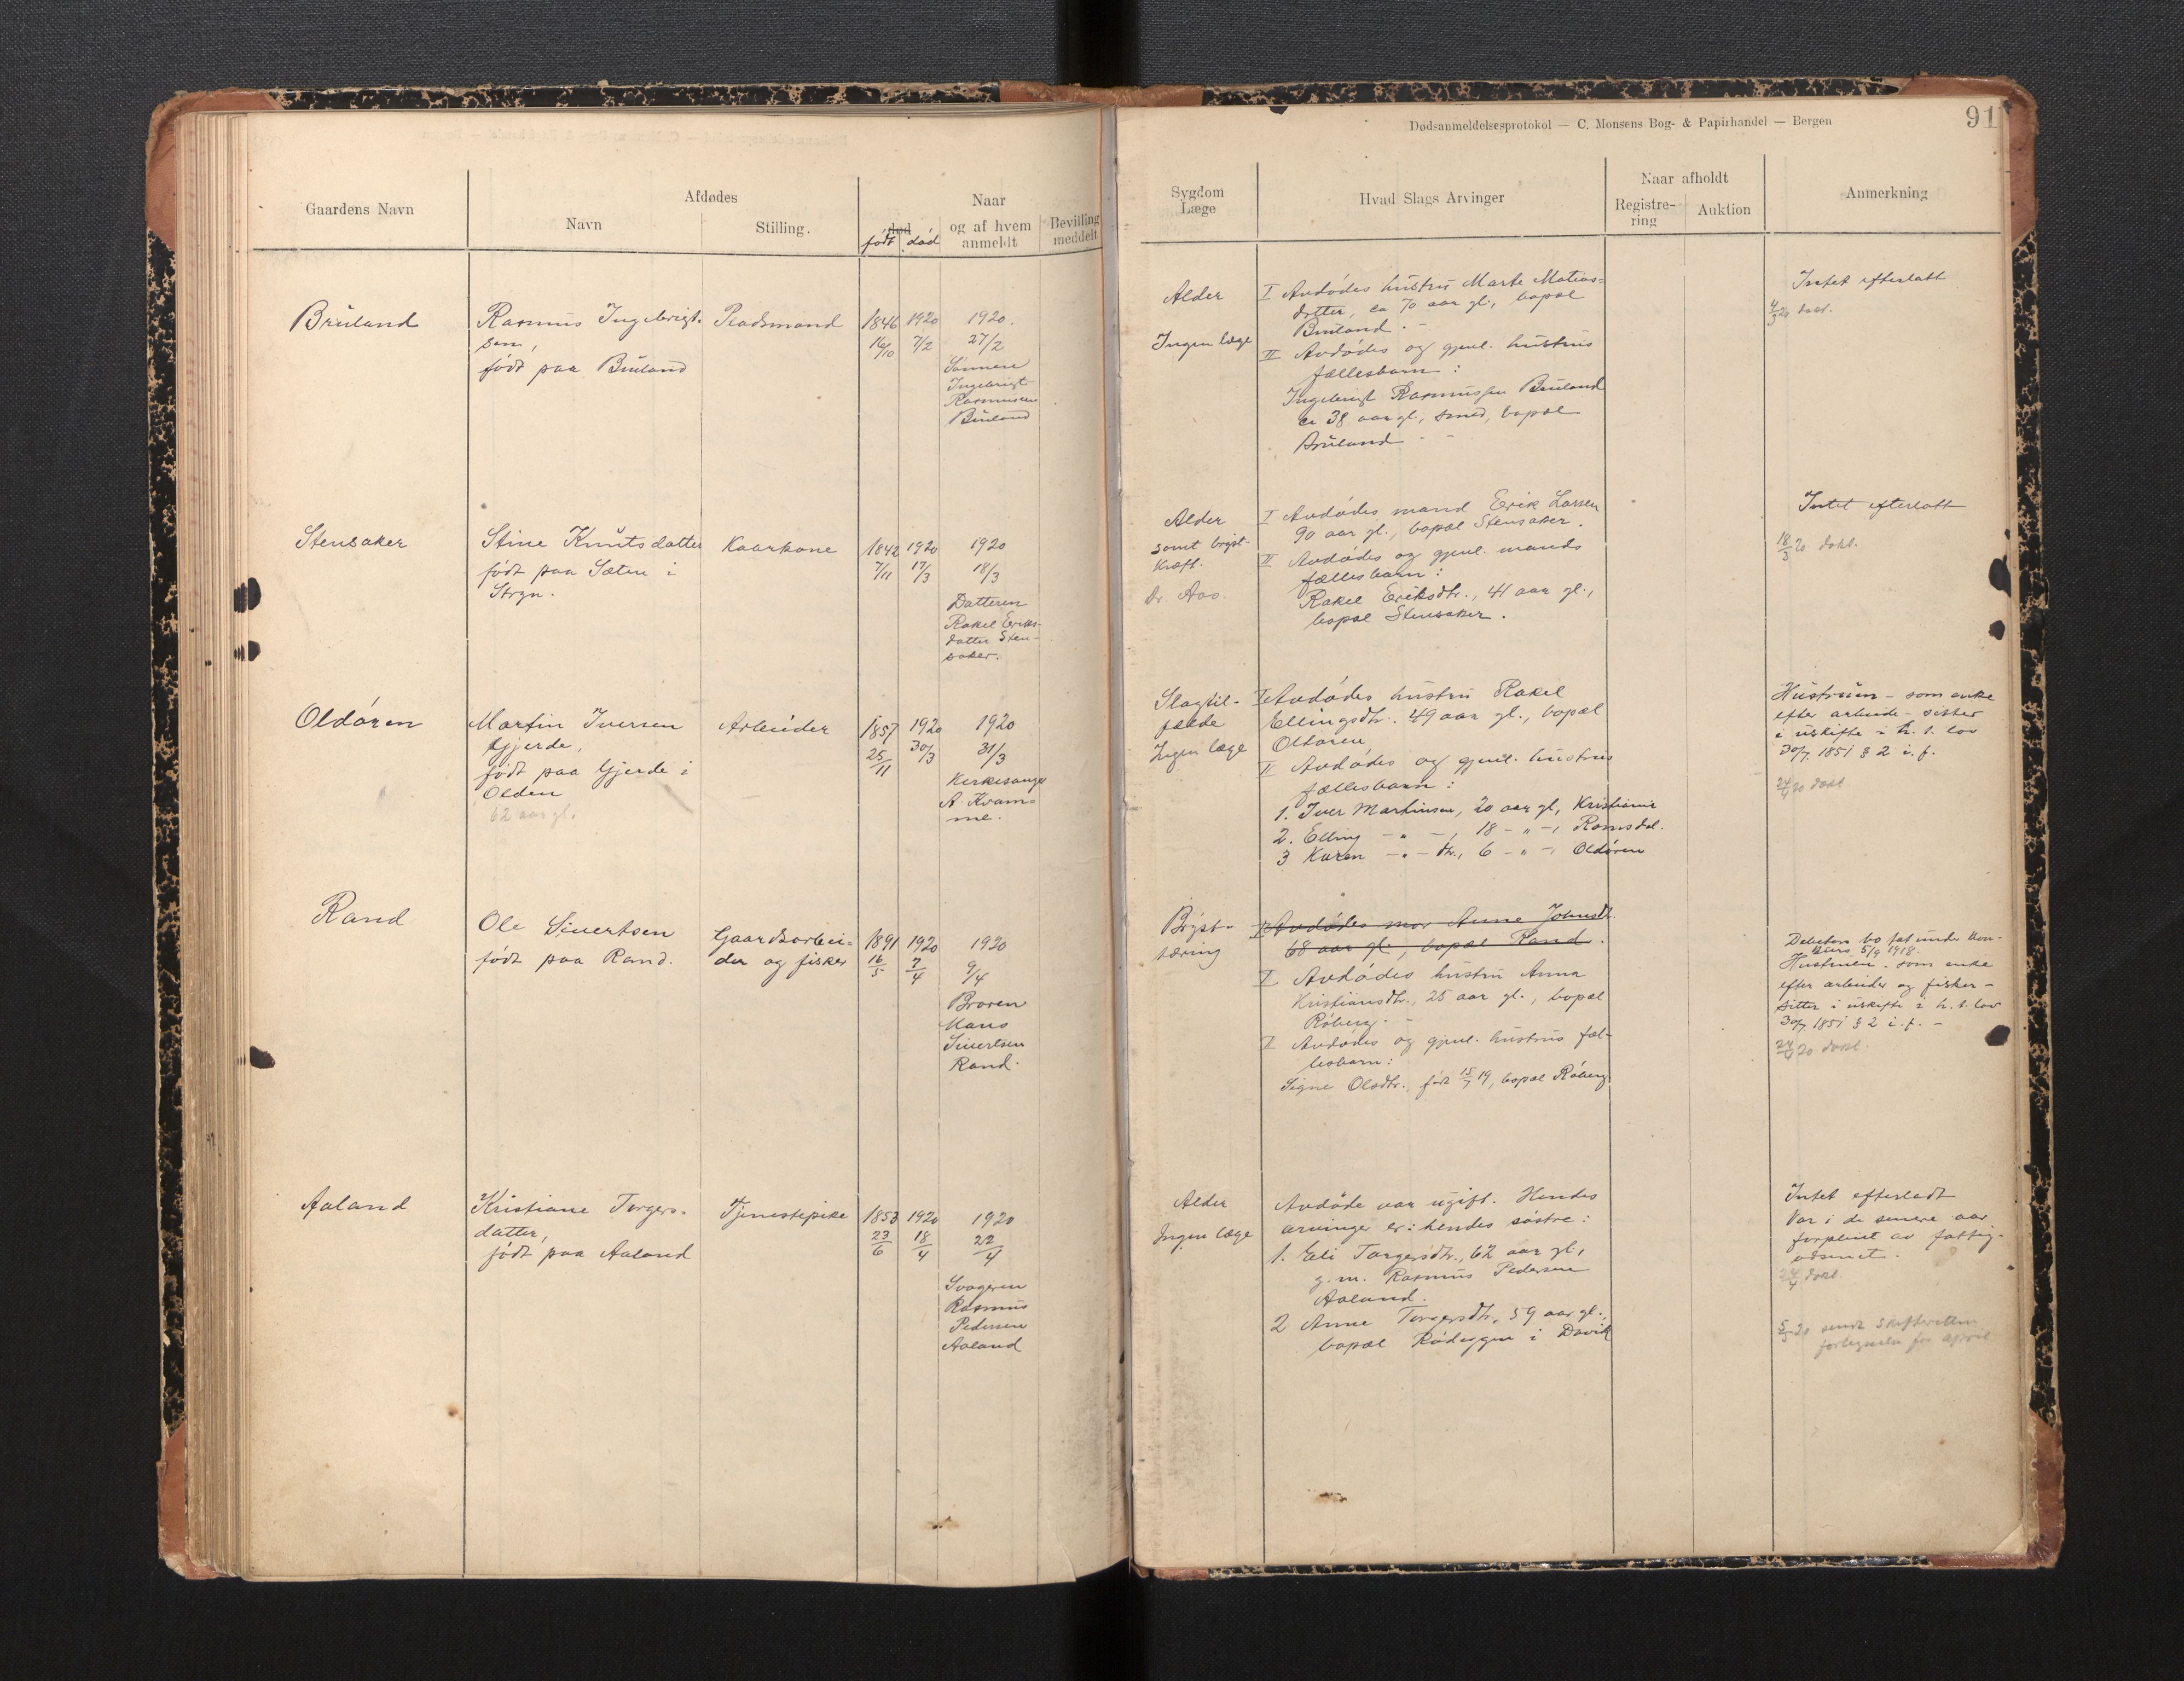 91
Dødsanmeldelsesprotokol — C. Monsens Bog- & Papirhandel — Bergen
Gaardens Navn
Afdødes
Navn
Stilling.
død
født død
Naar
og af hvem
anmeldt
Bevilling
meddelt
Sygdom
Læge
Hvad Slags Arvinger
Naar afholdt
Registre-
ring
Auktion
Anmerkning
Bruland
Rasmus Ingebrigt-
sen,
født paa Bruland
Pladsmand
1846
16/10
1920
7/2
1920.
27/2
Sønnen
Ingebrigt
Rasmussen
Bruland
Alder
Ingen læge
I Avdødes hustru Marte Matias-
datter, ca 70 aar gl., bopæl
Bruland. -
II Avdødes og gjenl. hustrus
fællesbarn:
Ingebrigt Rasmussen Bruland
ca 38 aar gl., smed, bopæl
Bruland - -
Intet efterlatt
4/3 20 dokt.
Stensaker
Stine Knutsdatter
født paa Sæten i
Stryn.
Kaarkone
1842
7/11
1920
17/3
1920
18/3
Datteren
Rakel Eriks-
datter Sten-
saker.
Alder
samt bryst-
kræft.
Dr. Aas.
I Avdødes mand Erik Larsen
90 aar gl., bopæl Stensaker.
II Avdødes og gjenl. mands
fællesbarn:
Rakel Eriksdtr., 41 aar gl.,
bopæl Stensaker.
Intet efterlatt
18/3 20 dokt.
Oldøren
Martin Iversen
Gjerde,
født paa Gjerde i
Olden
62 aar gl.
Arbeider
1857
25/11
1920
30/3
1920
31/3
Kirkesanger
A. Kvam-
me.
Slagtil-
fælde
Ingen læge
I Avdødes hustru Rakel
Ellingsdtr. 49 aar gl., bopæl
Oldøren
II Avdødes og gjenl. hustrus
fællesbarn:
1. Iver Martinsen, 20 aar gl, Kristiania
2. Elling - " -, 18 - " -, Romsdal.
3 Karen - " - dtr., 6 - " -, Oldøren
Hustruen - som enke
efter arbeider - sitter
i uskifte i h. t. lov
30/7 1851 § 2 i. f.
24/4 20 dokt
Rand
Ole Sivertsen
født paa Rand.
Gaardsarbei-
der og fisker
1891
16/5
1920
7/4
1920
9/4
Broren
Hans
Sivertsen
Rand.
Bryst-
tæring
I Avdødes mor Anne Johnsdt.
68 aar gl., bopæl Rand.
I Avdødes hustru Anna
Kristiansdtr., 25 aar gl., bopæl
Røberg. -
II Avdødes og gjenl. hustrus fæl-
lesbarn:
Signe Olsdtr., født 15/7 19, bopæl Røberg
Debitors bo tat under kon-
kurs 5/9 1918.
Hustruen - som enke
efter arbeider og fisker -
sitter i uskifte i h. t. lov
30/7 1851 § 2 i. f. -
24/4 20 dokt.
Aaland
Kristiane Torgers-
datter,
født paa Aaland
Tjenestepike
1853
23/6
1920
18/4
1920
22/4
Svogeren
Rasmus
Pedersen
Aaland
Alder
Ingen læge
Avdøde var ugift. Hendes
arvinger er: hendes søstre:
1. Eli Torgersdtr., 62 aar gl.,
g. m. Rasmus Pedersen
Aaland.
2 Anne Torgersdtr., 59 aar gl.,
bopæl Rødeggen i Davik
Intet efterladt
Var i de senere aar
forpleiet av fattig-
væsenet.
24/4 dokt.
5/5 20 sendt skifteretten
fortegnelse for april